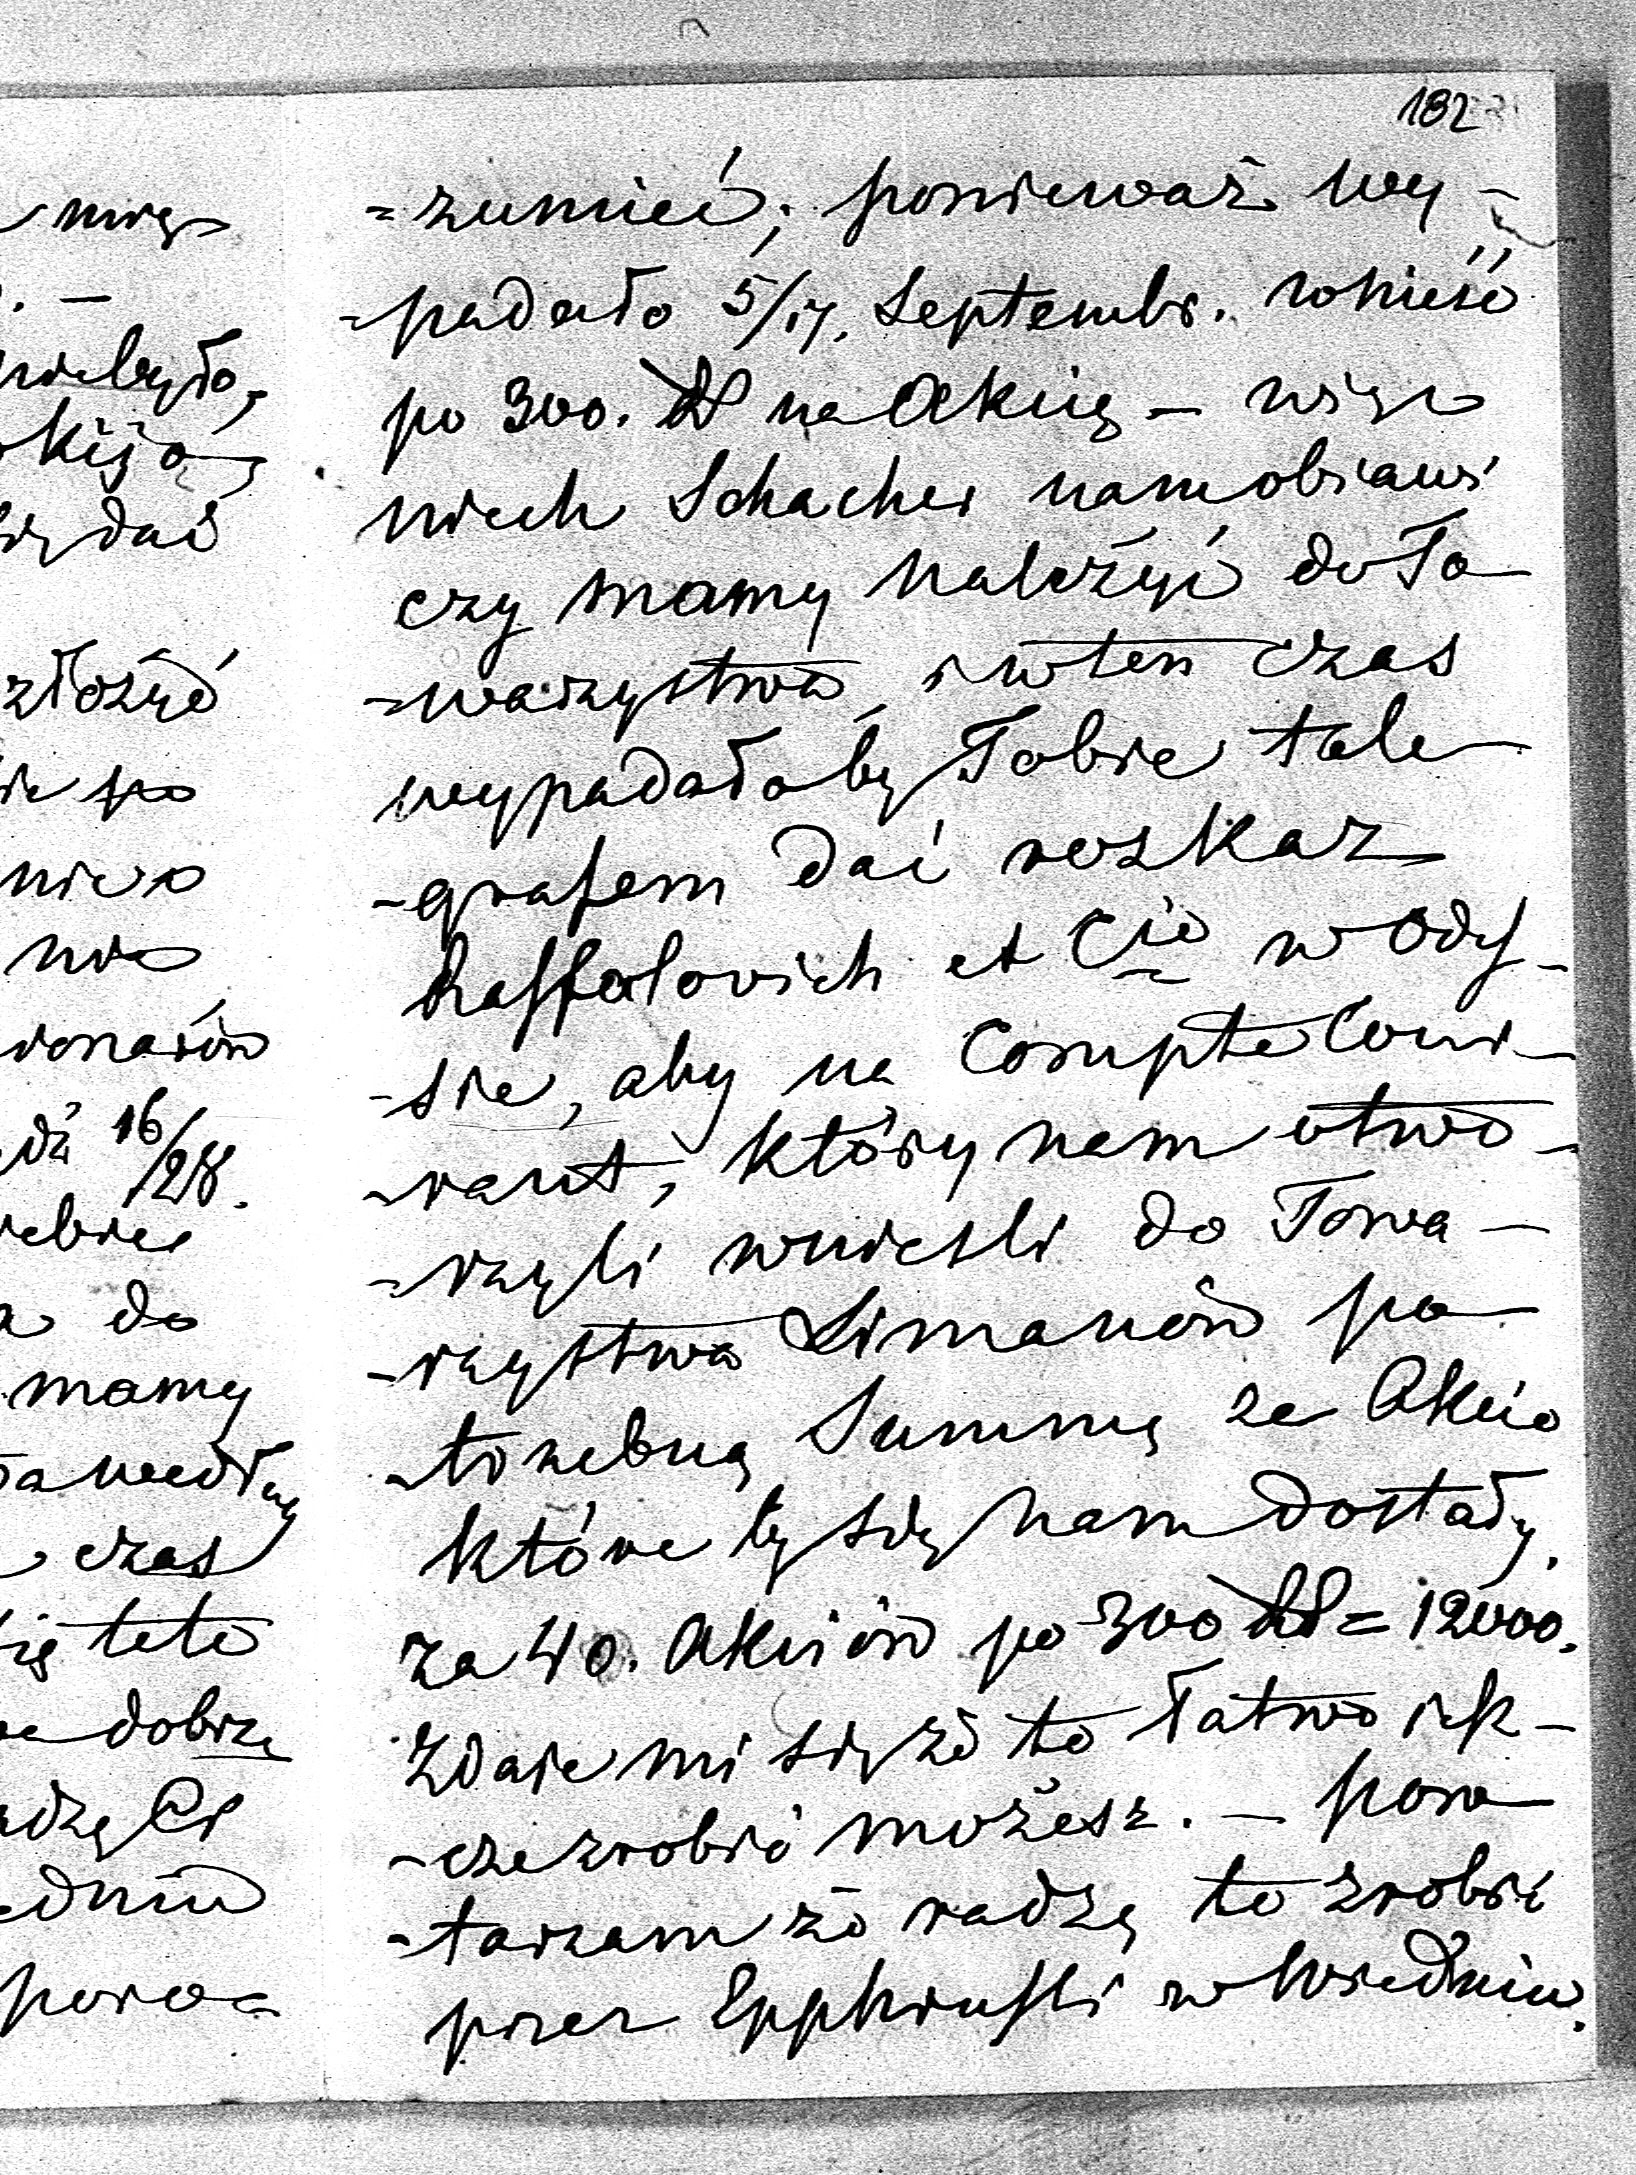 182
=zumieć; ponieważ wy-
-padało 5/17. Septembr. wnieść
po 300. na Akcię – więc
niech Schacher nam obiawi
czy mamy należyć do To
-warzystwa, i w ten czas
wypadałoby Tobie tele-
-grafem dać roskaz
Raffalovich et Cie w Ody-
-sie, aby na Compte Cour-
-rant, który nam otwo-
-rzyli wnieśli do Towa-
-rzystwa Limanów po-
-trzebną Summę za Akcie
któreby się nam dostały,
za 40. Akciów po 300 = 12000.
Zdaie mi się że to łatwo ie-
-cze zrobić możesz. – pow-
-tarzam że radzę to zrobić
przez Epphrussi w Wiedniu.
mię
. –
niebyło,
się dać
złożyć
się po
nic
dź 16/28.
do
mamy
czas
dobrze
dzę Ci
dniu